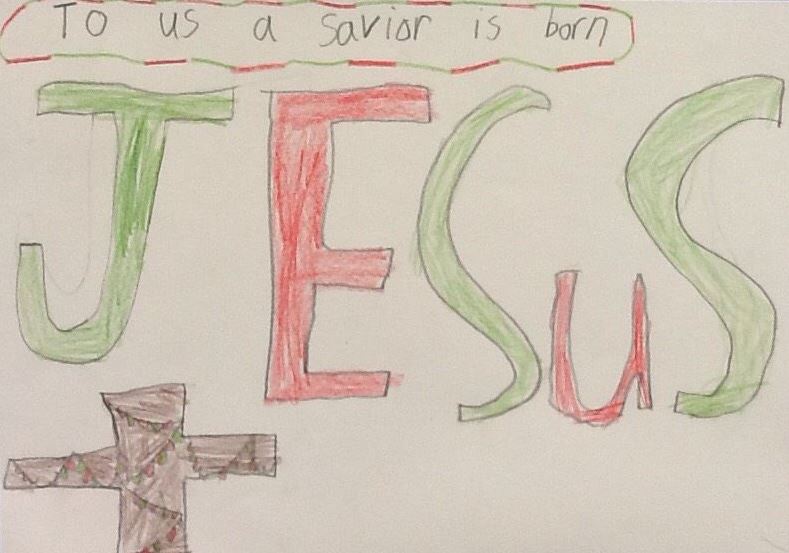 To us a savior is born
JESuS